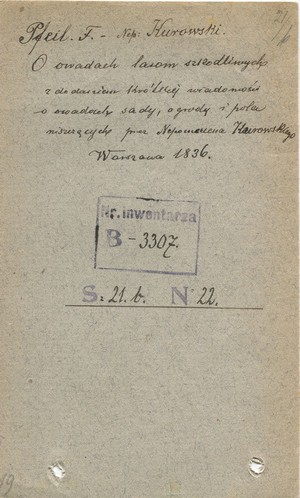 21/6
Pfeil. F. - Nep. Kurowski.
O owadach lasom szkodliwych
z dodaniem krótkiej wiadomości
o owadach sady, ogrody i pola
niszczących przez Nepomucena Kurowskiego
Warszawa 1836.
Nr. inwentarza
B - 3307.
S: 21. b. N: 22.